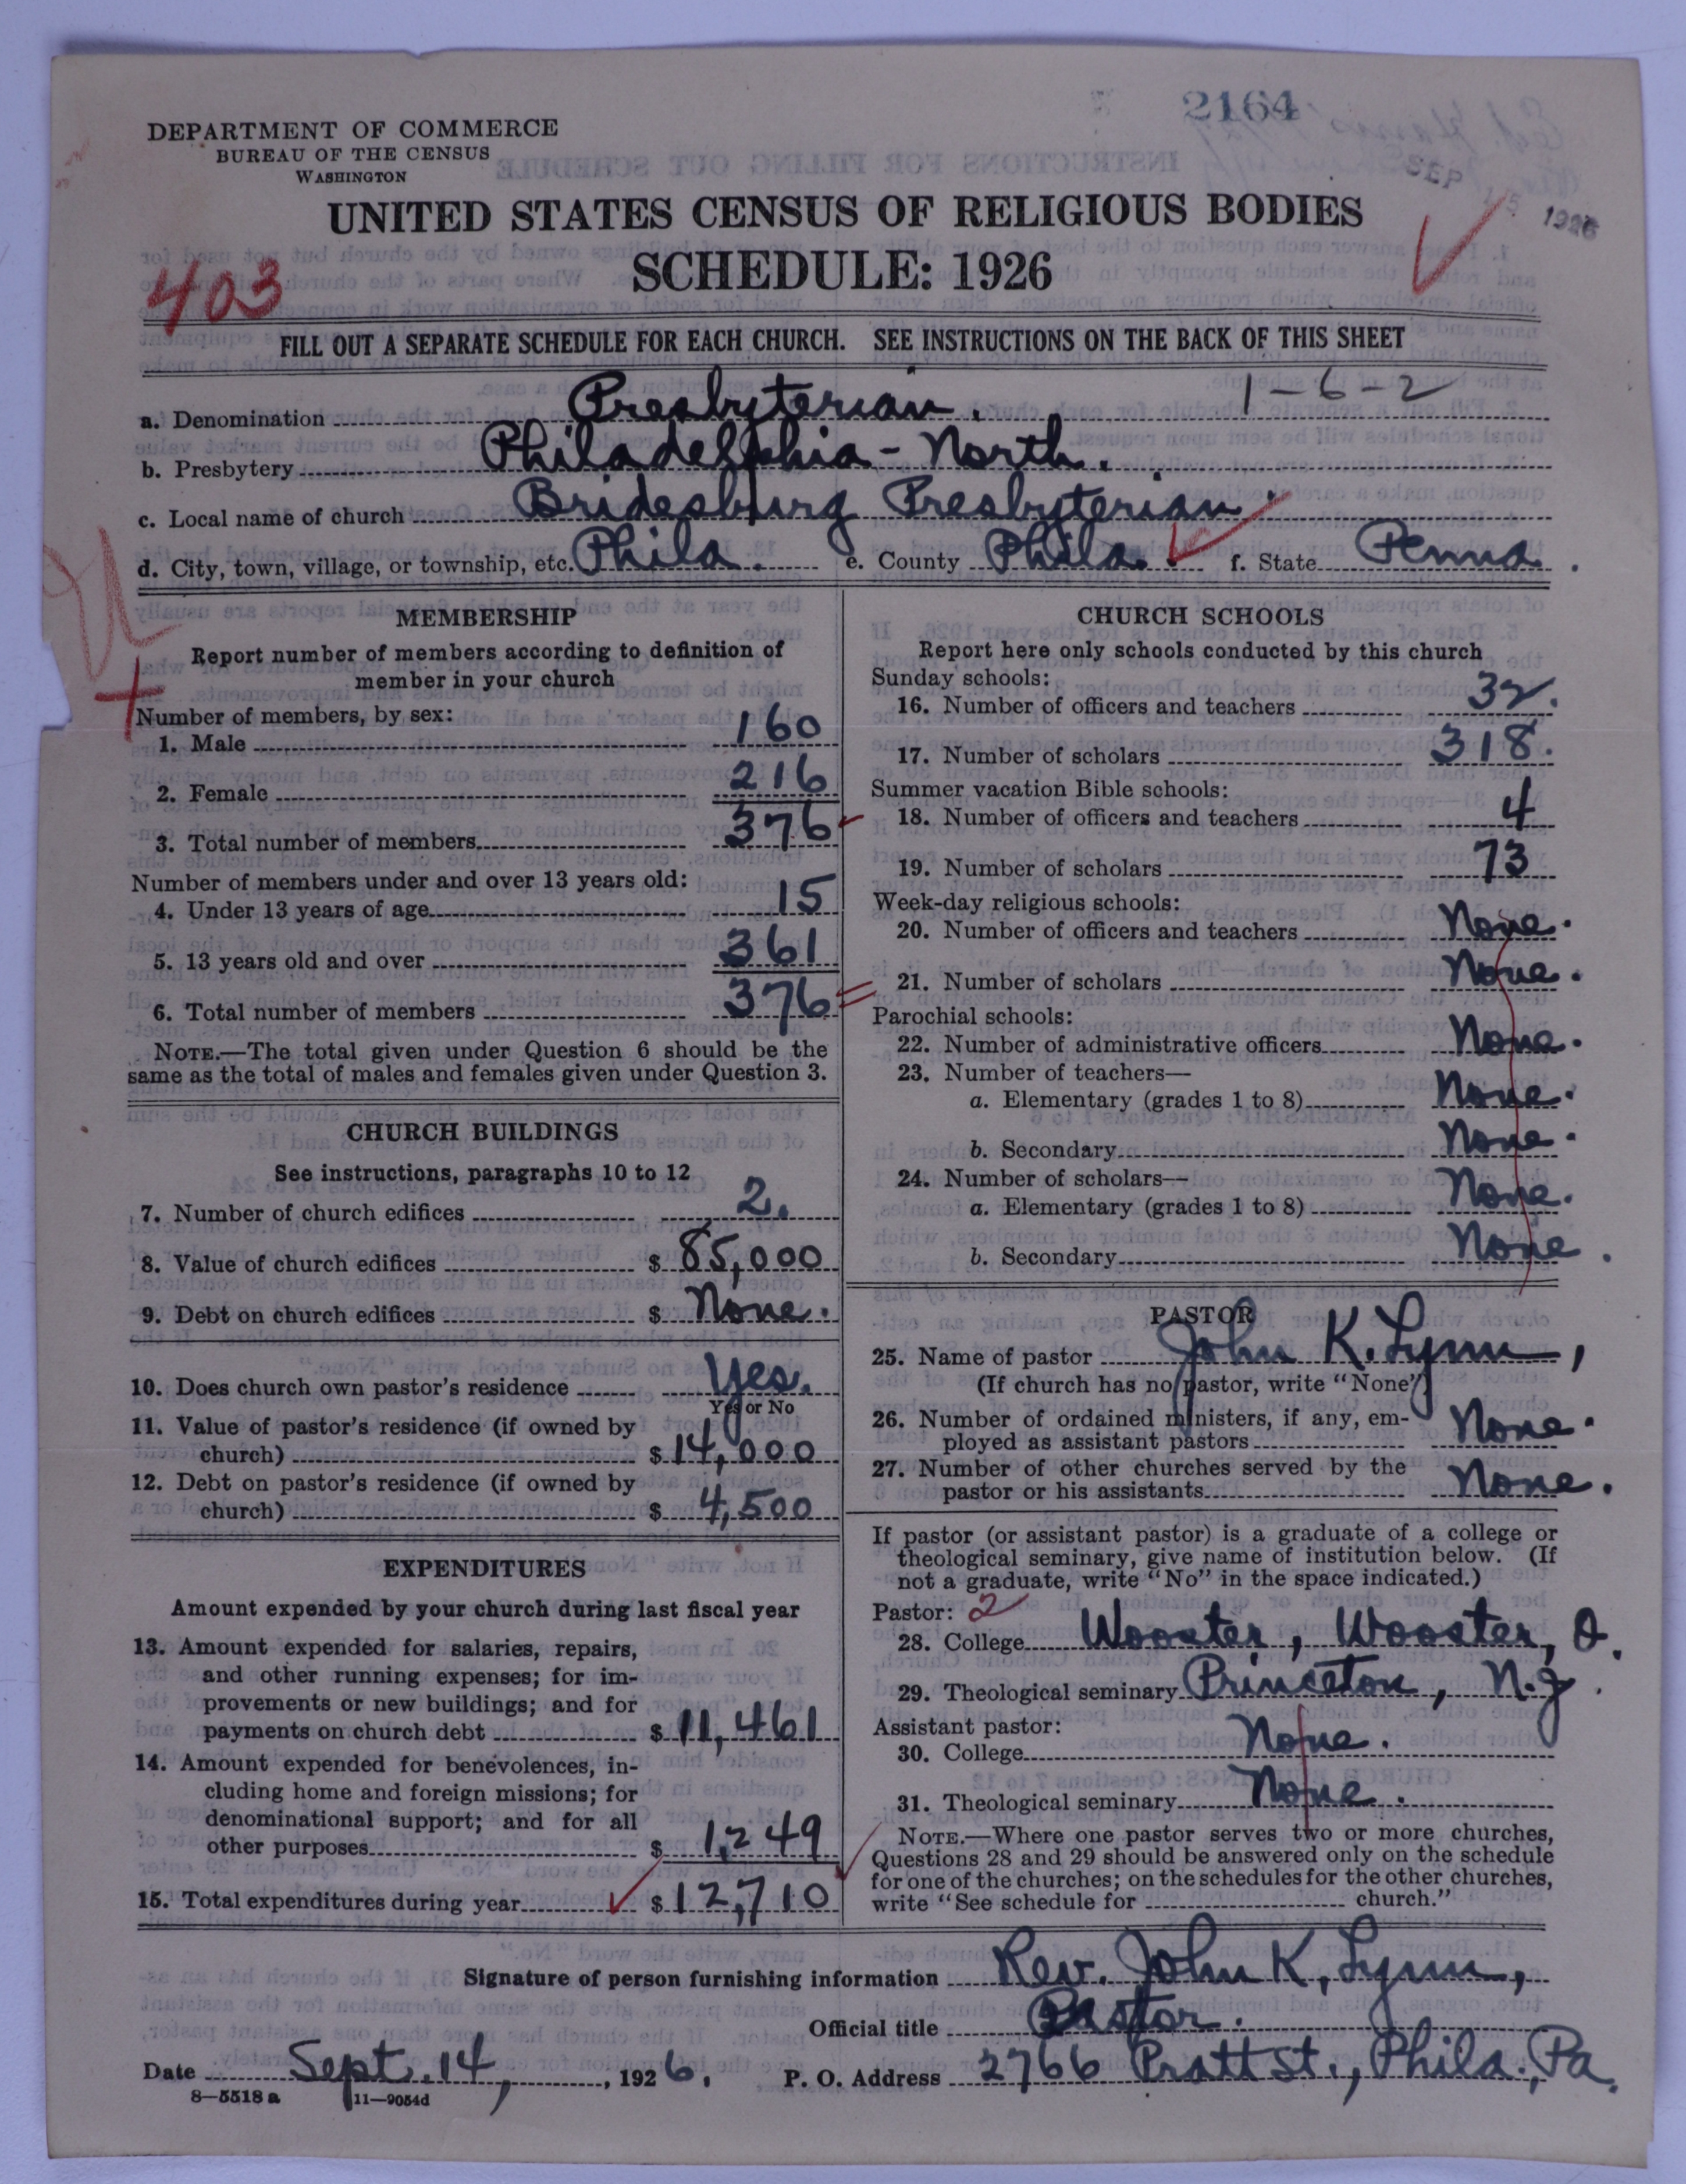 2164
DEPARTMENT OF COMMERCE
BUREAU OF THE CENSUS
WASHINGTON
SEP 15 1926
UNITED STATES CENSUS OF RELIGIOUS BODIES
SCHEDULE: 1926
403
FILL OUT A SEPARATE SCHEDULE FOR EACH CHURCH. SEE INSTRUCTIONS ON THE BACK OF THIS SHEET
1-6-2
a. Denomination Presbyterian.
b. Presbytery Philadelphia-North.
c. Local name of church Bridesburg Presbyterian
d. City, town, village, or township, etc. Phila. e. County Phila. f. State Penna.
MEMBERSHIP
Report number of members according to definition of
member in your church
Number of members, by sex:
1. Male 160
2. Female 216
3. Total number of members 376
Number of members under and over 13 years old:
4. Under 13 years of age 15
5. 13 years old and over 361
6. Total number of members 376
NOTE.—The total given under Question 6 should be the
same as the total of males and females given under Question 3.
CHURCH BUILDINGS
See instructions, paragraphs 10 to 12
7. Number of church edifices 2.
8. Value of church edifices $ 85,000
9. Debt on church edifices $ None.
10. Does church own pastor's residence Yes.
Yes or No
11. Value of pastor's residence (if owned by
church) $ 14,000
12. Debt on pastor's residence (if owned by
church) $ 4,500
EXPENDITURES
Amount expended by your church during last fiscal year
13. Amount expended for salaries, repairs,
and other running expenses; for im-
provements or new buildings; and for
payments on church debt $ 11,461
14. Amount expended for benevolences, in-
cluding home and foreign missions; for
denominational support; and for all
other purposes $ 1,249
15. Total expenditures during year $ 12,710
CHURCH SCHOOLS
Report here only schools conducted by this church
Sunday schools:
16. Number of officers and teachers 32.
17. Number of scholars 318.
Summer vacation Bible schools:
18. Number of officers and teachers 4
19. Number of scholars 73
Week-day religious schools:
20. Number of officers and teachers None.
21. Number of scholars None.
Parochial schools:
22. Number of administrative officers None.
23. Number of teachers—
a. Elementary (grades 1 to 8) None.
b. Secondary None.
24. Number of scholars—
a. Elementary (grades 1 to 8) None.
b. Secondary None.
PASTOR
25. Name of pastor John K. Lynn,
(If church has no pastor, write "None")
26. Number of ordained ministers, if any, em-
ployed as assistant pastors None.
27. Number of other churches served by the
pastor or his assistants None.
If pastor (or assistant pastor) is a graduate of a college or
theological seminary, give name of institution below. (If
not a graduate, write "No" in the space indicated.)
Pastor: 2
28. College Wooster, Wooster, O.
29. Theological seminary Princeton, N.J.
Assistant pastor:
30. College None.
31. Theological seminary None.
NOTE.—Where one pastor serves two or more churches,
Questions 28 and 29 should be answered only on the schedule
for one of the churches; on the schedules for the other churches,
write "See schedule for church."
Signature of person furnishing information Rev. John K. Lynn,
Official title Pastor.
Date Sept. 14, 1926. P. O. Address 2766 Pratt St., Phila., Pa.
8—5518 a 11—9054d